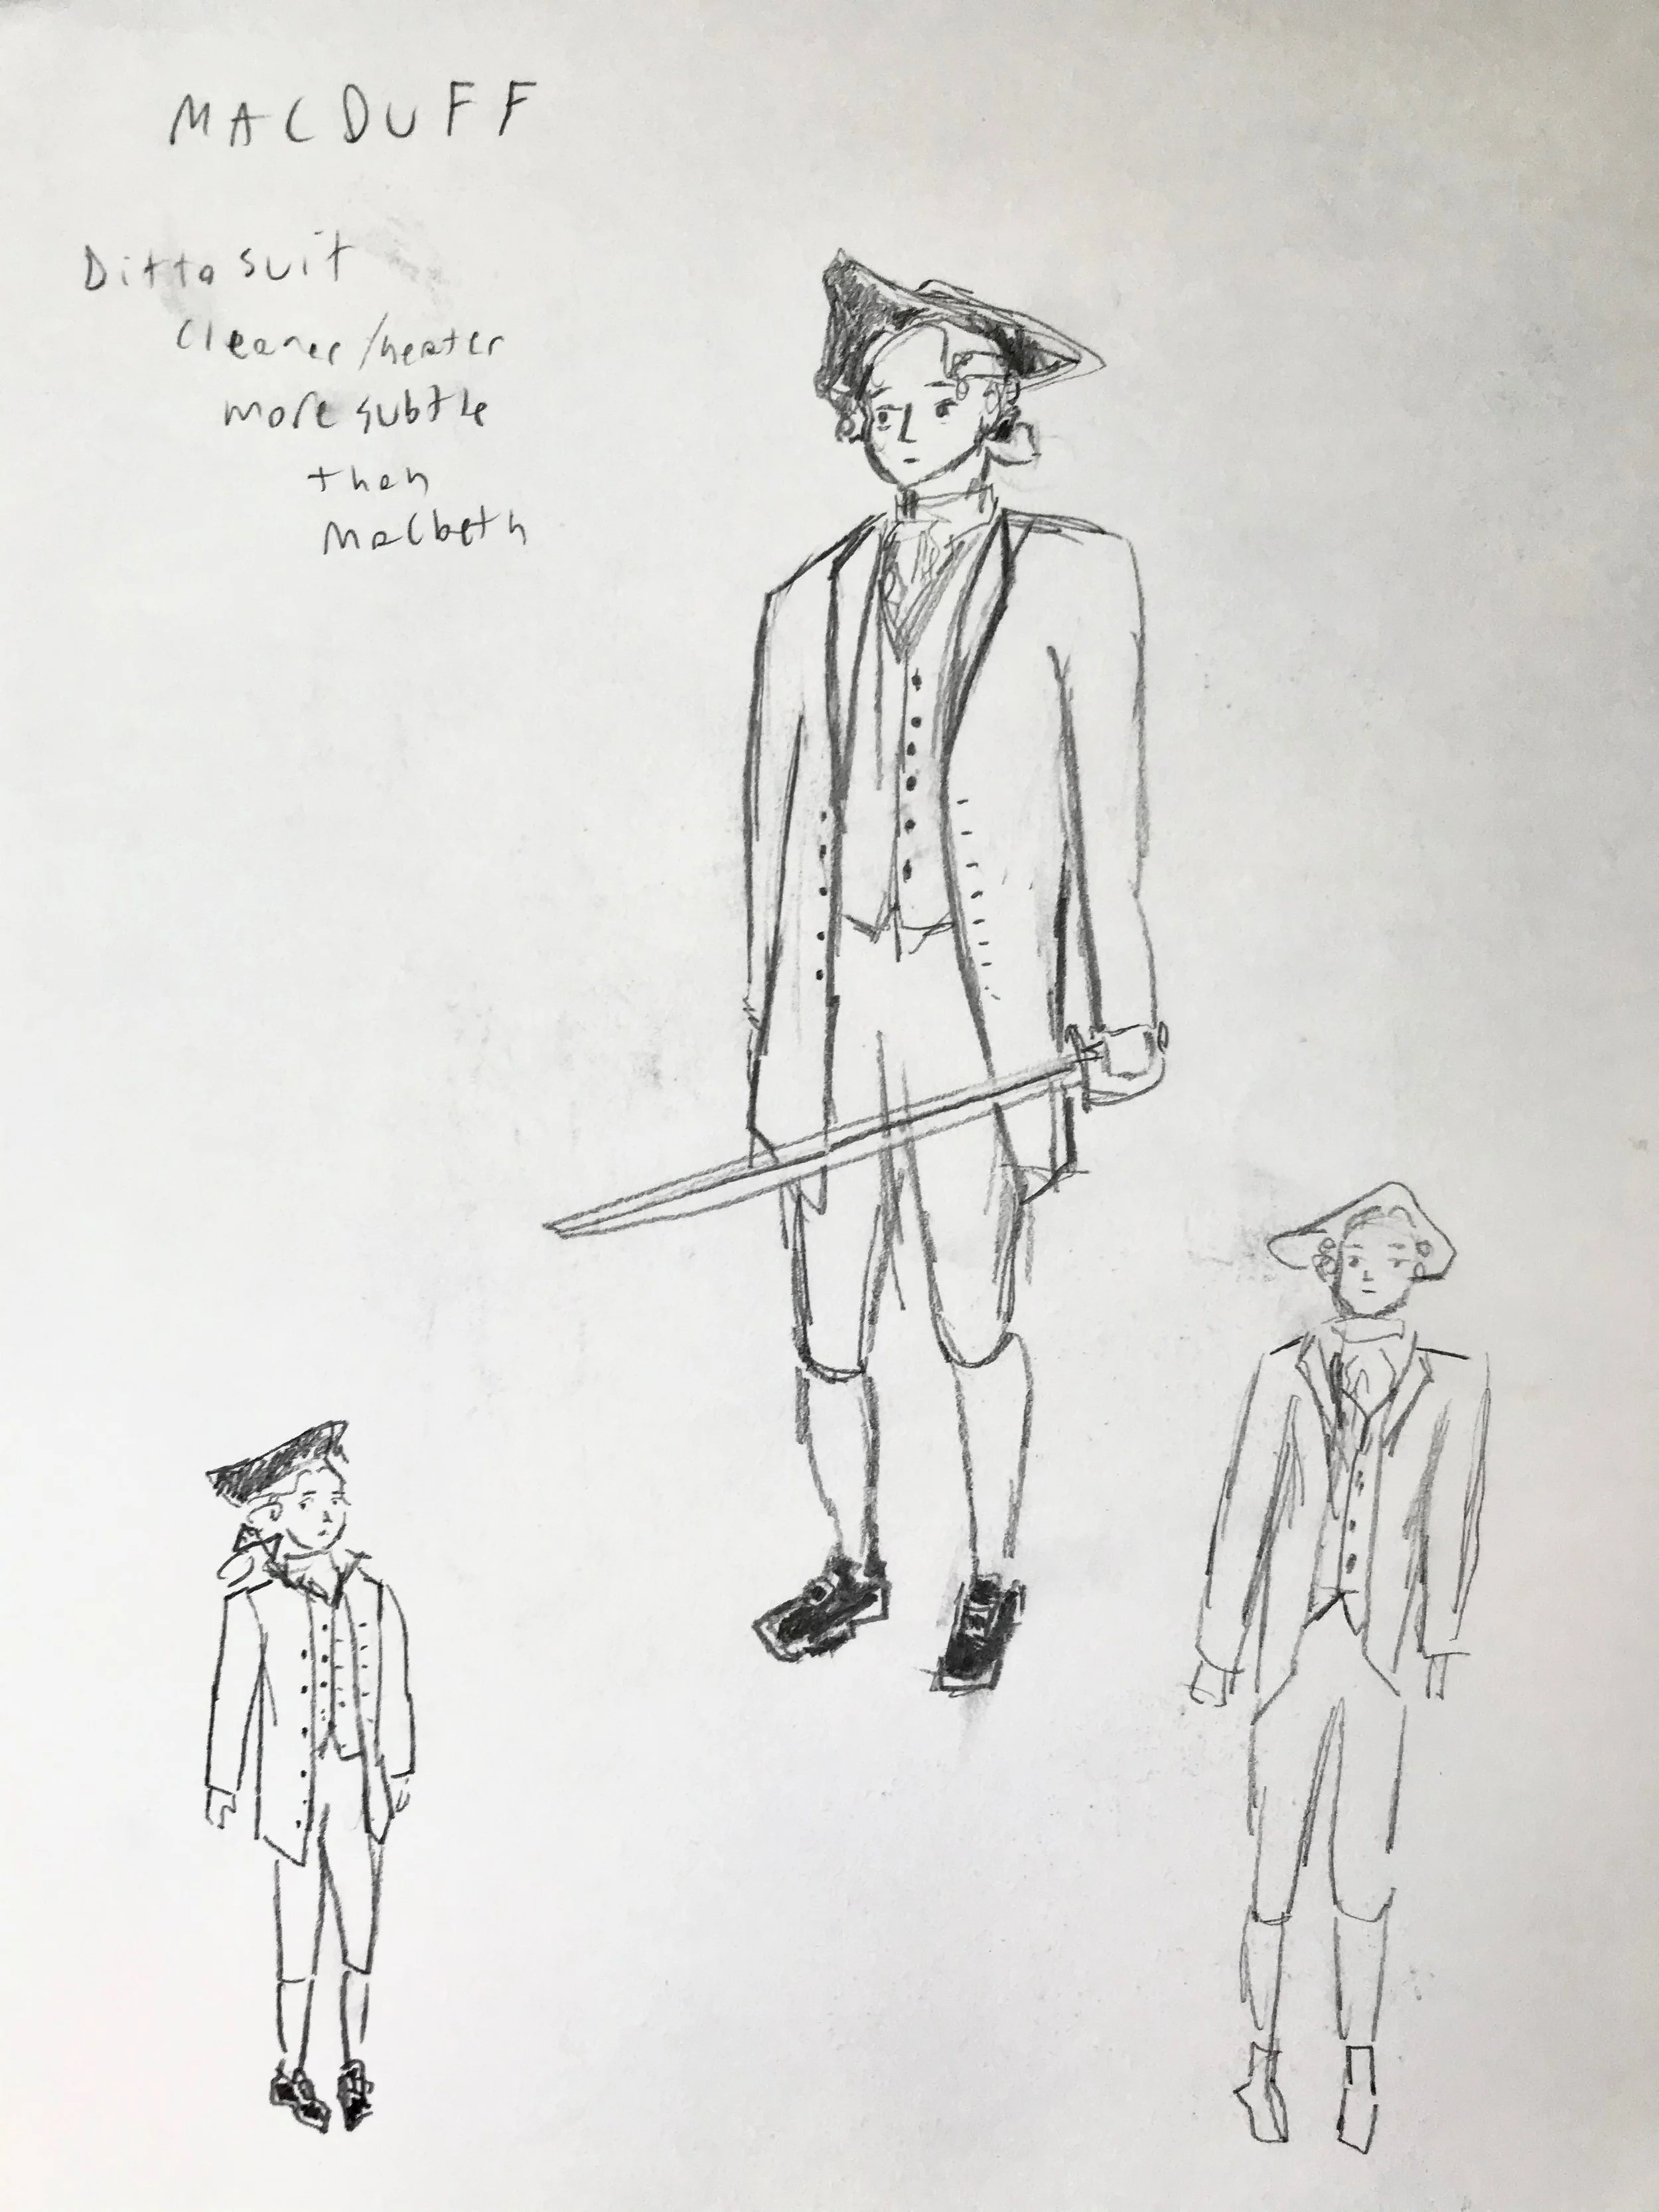 MACDUFF
Ditto suit
cleaner/neater
more subtle
than
Macbeth